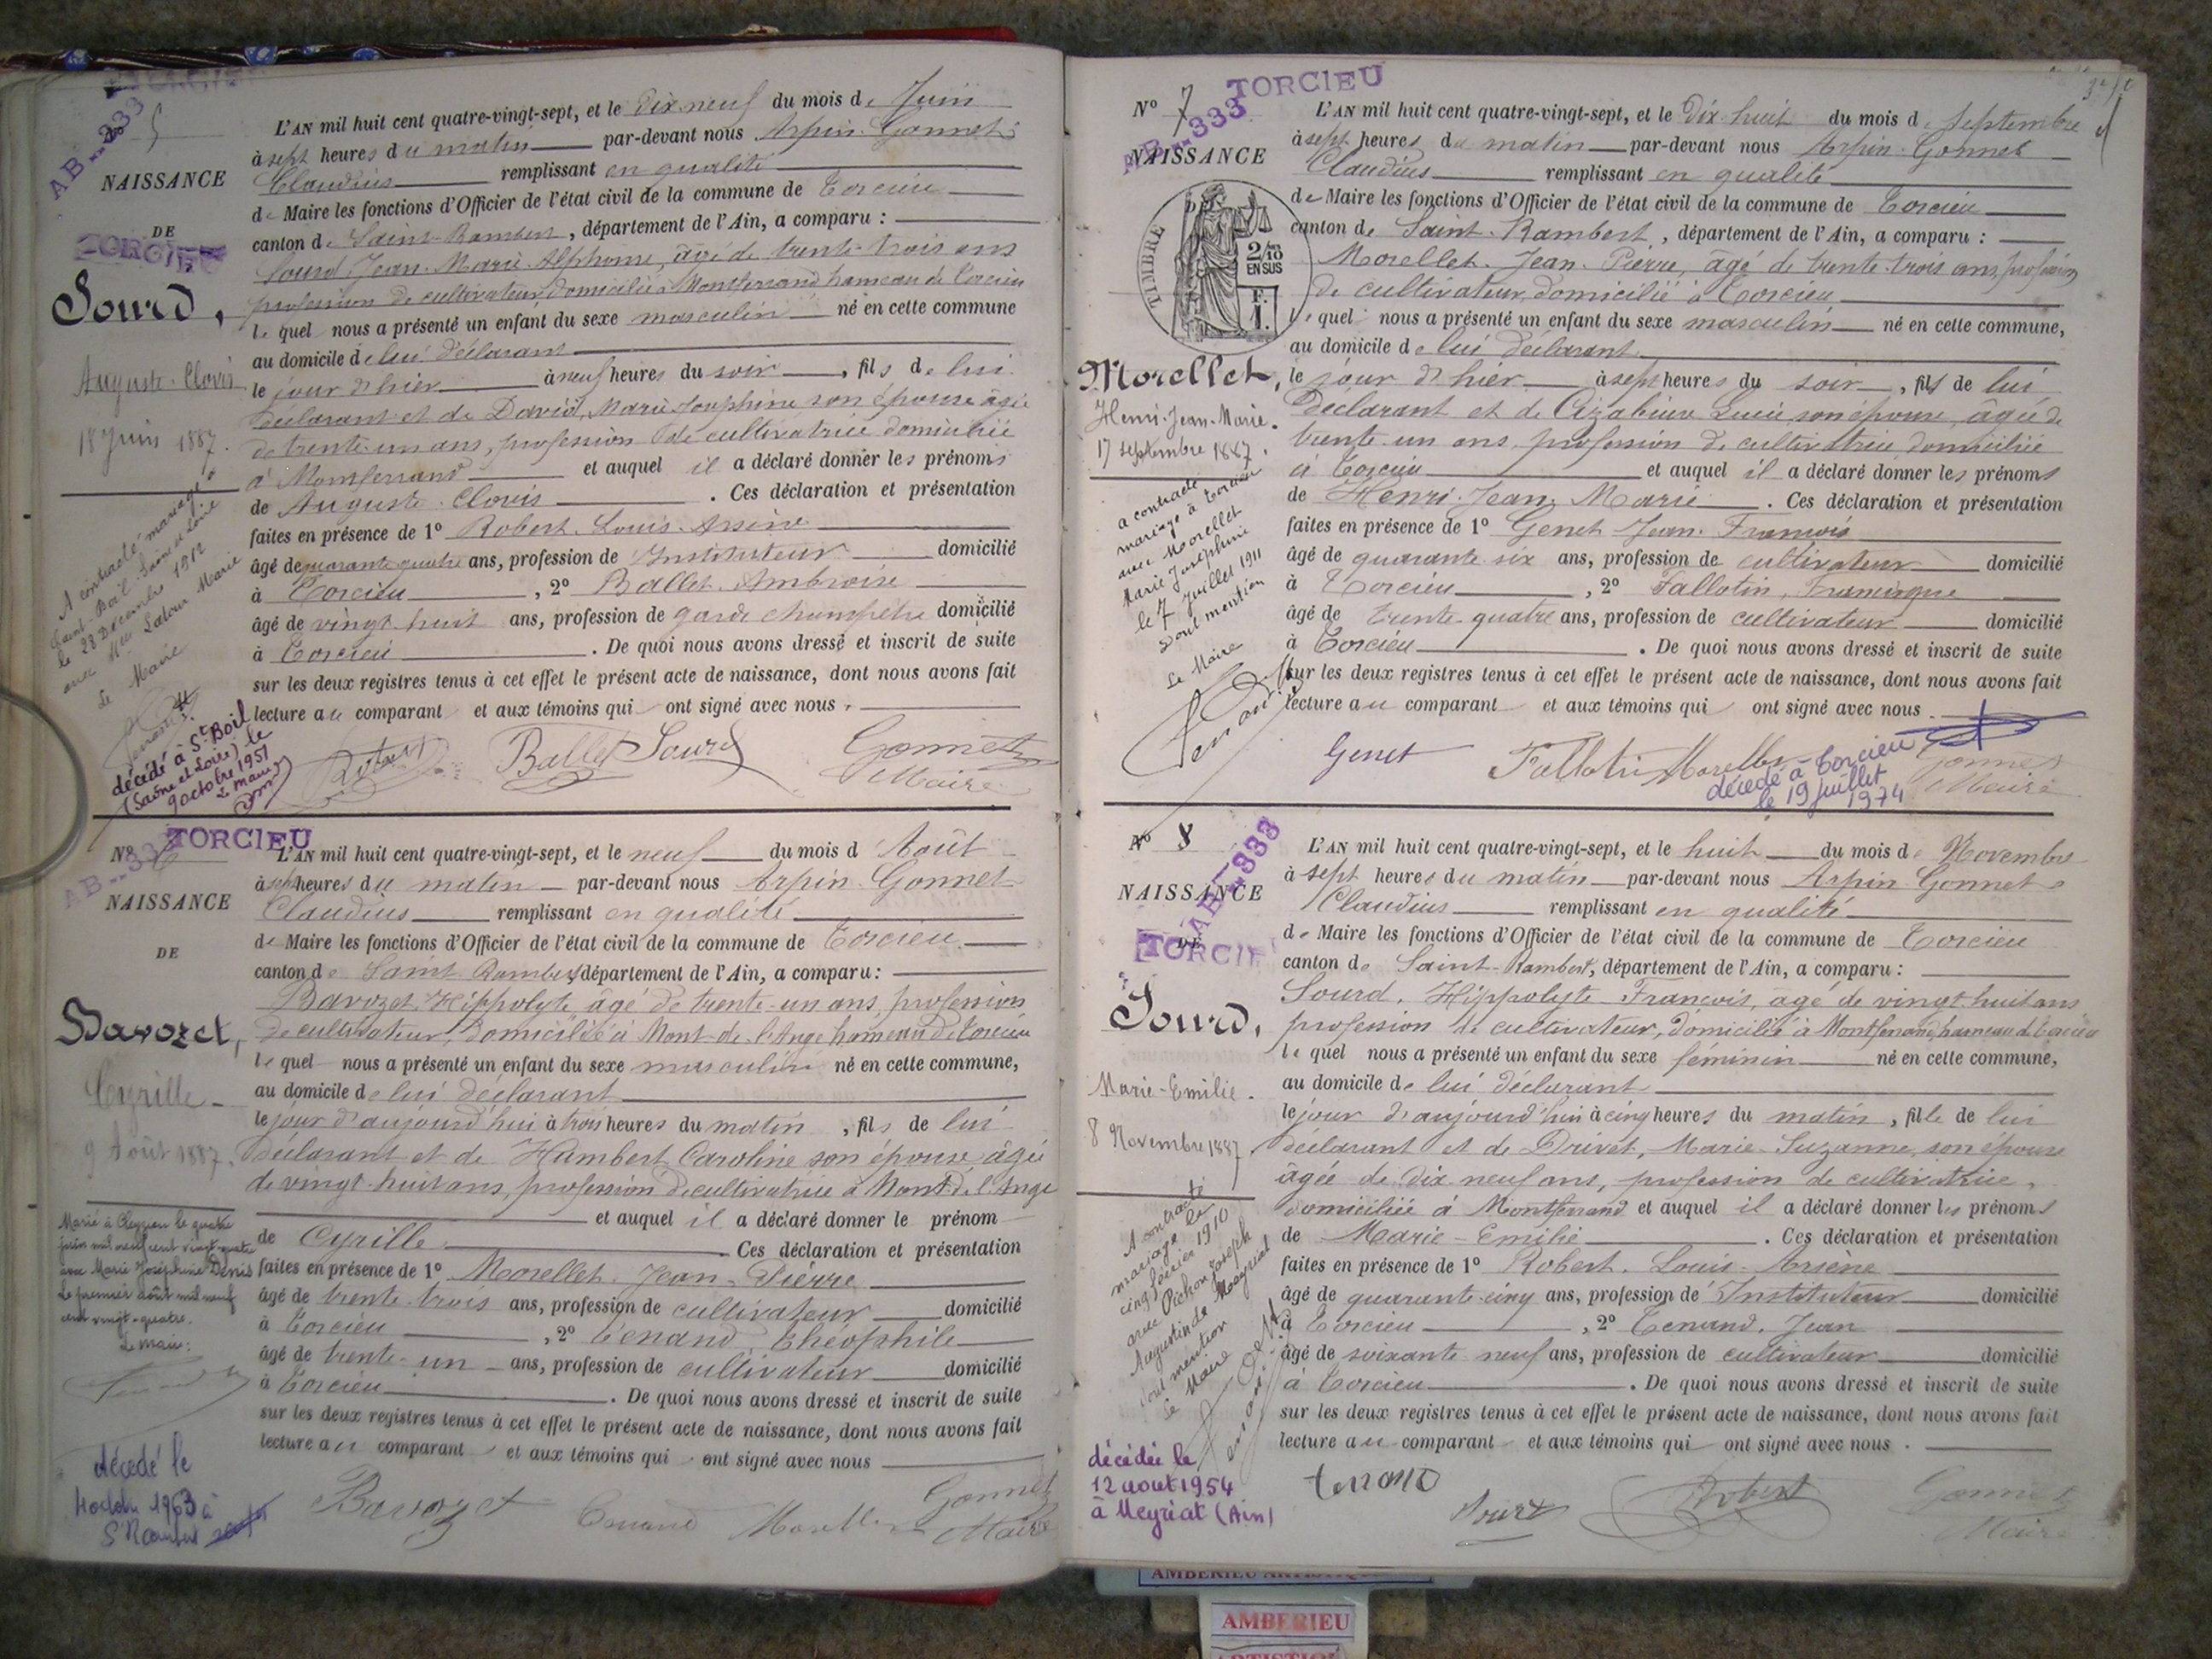 TORCIEU
AB..333
5
NAISSANCE
DE
TORCIEU
Sourd,
Auguste-Clovis
18 Juin 1887.
A contracté mariage à
Saint-Boil Saône et Loire
le 28 Décembre 1912
avec Mlle Latour Marie
Le Maire
décédé à St Boil
(Saône et Loire) le
9 octobre 1951
Le Maire
L'AN mil huit cent quatre-vingt-sept, et le Dix-neuf du mois de Juin
à sept heures du matin par-devant nous Arpin-Gonnet
Claudius remplissant en qualité
de Maire les fonctions d'Officier de l'état civil de la commune de Torcieu
canton de Saint-Rambert, département de l'Ain, a comparu :
Sourd Jean-Marie-Alphonse, âgé de trente-trois ans
profession de cultivateur, domicilié à Montferrand hameau de Torcieu
lequel nous a présenté un enfant du sexe masculin né en cette commune
au domicile de lui déclarant
le jour d'hier à neuf heures du soir, fils de lui
déclarant et de David, Marie Josephine son épouse âgée
de trente-un ans, profession de cultivatrice domiciliée
à Montferrand et auquel il a déclaré donner les prénoms
de Auguste-Clovis. Ces déclaration et présentation
faites en présence de 1º Robert-Louis-Arsène
âgé de quarante quatre ans, profession de Instituteur domicilié
à Torcieu, 2º Ballet-Ambroise
âgé de vingt huit ans, profession de garde champêtre domicilié
à Torcieu. De quoi nous avons dressé et inscrit de suite
sur les deux registres tenus à cet effet le présent acte de naissance, dont nous avons fait
lecture au comparant et aux témoins qui ont signé avec nous.
Robert Ballet Sourd Gonnet
Maire
TORCIEU
Nº 6
AB..333
NAISSANCE
DE
Bavozet,
Cyrille
9 Août 1887.
Marié à Cleyzieu le quatre
juin mil neuf cent vingt-quatre
avec Marie Joséphine Denis
Le premier août mil neuf
cent vingt-quatre.
Le maire:
décédé le
4 octobre 1963 à
St Rambert
L'AN mil huit cent quatre-vingt-sept, et le neuf du mois d'Août
à sept heures du matin par-devant nous Arpin-Gonnet
Claudius remplissant en qualité
de Maire les fonctions d'Officier de l'état civil de la commune de Torcieu
canton de Saint-Rambert, département de l'Ain, a comparu :
Bavozet-Hippolyte, âgé de trente-un ans, profession
de cultivateur, domicilié à Mont-de-l'Ange hameau de Torcieu
lequel nous a présenté un enfant du sexe masculin né en cette commune,
au domicile de lui déclarant
le jour d'aujourd'hui à trois heures du matin, fils de lui
déclarant et de Humbert Caroline son épouse âgée
de vingt-huit ans, profession de cultivatrice à Mont-de-l'Ange
et auquel il a déclaré donner le prénom
de Cyrille. Ces déclaration et présentation
faites en présence de 1º Morellet-Jean-Pierre
âgé de trente-trois ans, profession de cultivateur domicilié
à Torcieu, 2º Tenand, Théophile
âgé de trente-un ans, profession de cultivateur domicilié
à Torcieu. De quoi nous avons dressé et inscrit de suite
sur les deux registres tenus à cet effet le présent acte de naissance, dont nous avons fait
lecture au comparant et aux témoins qui ont signé avec nous
Bavozet Tenand Morellet Gonnet
Maire
TORCIEU
Nº 7
AB..333
NAISSANCE
TIMBRE
2/10 EN SUS
F. 1.
Morellet,
Henri-Jean-Marie.
17 septembre 1887.
a contracté
mariage à Torcieu
avec Morellet
Marie Joséphine
le 7 juillet 1911
Dont mention
Le Maire
L'AN mil huit cent quatre-vingt-sept, et le Dix-huit du mois de Septembre
à sept heures du matin par-devant nous Arpin-Gonnet
Claudius remplissant en qualité
de Maire les fonctions d'Officier de l'état civil de la commune de Torcieu
canton de Saint-Rambert, département de l'Ain, a comparu :
Morellet-Jean-Pierre, âgé de trente-trois ans, profession
de cultivateur, domicilié à Torcieu
lequel nous a présenté un enfant du sexe masculin né en cette commune,
au domicile de lui déclarant
le jour d'hier à sept heures du soir, fils de lui
déclarant et de Lucie, son épouse, âgée de
trente-un ans, profession de cultivatrice domiciliée
à Torcieu et auquel il a déclaré donner les prénoms
de Henri-Jean-Marie. Ces déclaration et présentation
faites en présence de 1º Genet Jean-François
âgé de quarante-six ans, profession de cultivateur domicilié
à Torcieu, 2º Fallatin,
âgé de trente-quatre ans, profession de cultivateur domicilié
à Torcieu. De quoi nous avons dressé et inscrit de suite
sur les deux registres tenus à cet effet le présent acte de naissance, dont nous avons fait
lecture au comparant et aux témoins qui ont signé avec nous
Genet Fallatin Morellet Gonnet
Maire
décédé à Torcieu
le 19 juillet
1974
Nº 8
AB..333
NAISSANCE
DE
TORCIE
Sourd,
Marie-Emilie.
8 Novembre 1887
A contracté
mariage le
cinq février 1910
avec Pichon Joseph
Augustin de Meyriat
dont mention
Le Maire
décédée le
12 août 1954
à Meyriat (Ain)
L'AN mil huit cent quatre-vingt-sept, et le huit du mois de Novembre
à sept heures du matin par-devant nous Arpin-Gonnet
Claudius remplissant en qualité
de Maire les fonctions d'Officier de l'état civil de la commune de Torcieu
canton de Saint-Rambert, département de l'Ain, a comparu :
Sourd, Hippolyte-François, âgé de vingt-huit ans
profession de cultivateur, domicilié à Montferrand, hameau de Torcieu
lequel nous a présenté un enfant du sexe féminin né en cette commune,
au domicile de lui déclarant
le jour d'aujourd'hui à cinq heures du matin, fille de lui
déclarant et de Drivet, Marie-Suzanne, son épouse
âgée de dix neuf ans, profession de cultivatrice,
domiciliée à Montferrand et auquel il a déclaré donner les prénoms
de Marie-Emilie. Ces déclaration et présentation
faites en présence de 1º Robert-Louis-Arsène
âgé de quarante-cinq ans, profession de Instituteur domicilié
à Torcieu, 2º Tenand, Jean
âgé de soixante-neuf ans, profession de cultivateur domicilié
à Torcieu. De quoi nous avons dressé et inscrit de suite
sur les deux registres tenus à cet effet le présent acte de naissance, dont nous avons fait
lecture au comparant et aux témoins qui ont signé avec nous.
tenand Sourd Robert Gonnet
Maire
AMBERIEU
AMBERIEU
ARTISTIQUE